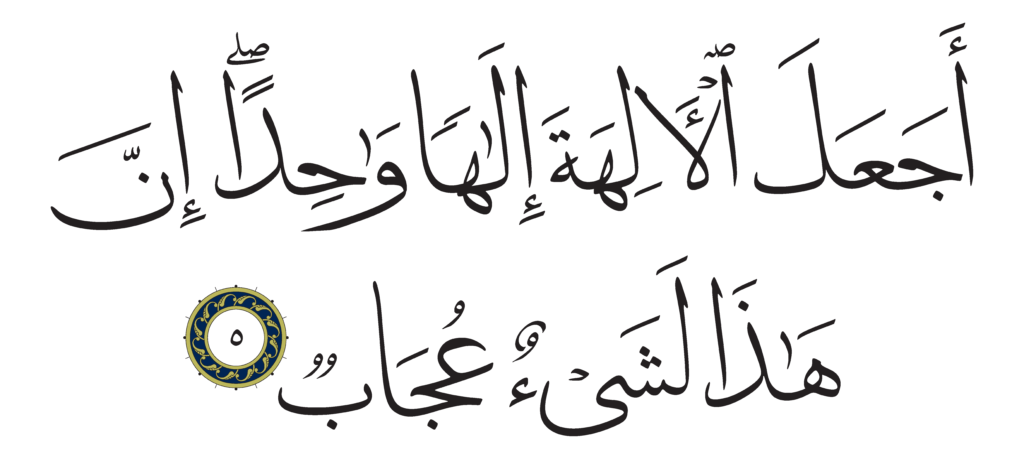 أَجَعَلَ ٱلْأَلِهَةَ إِلَٰهَا وَٰحِدًاۖ إِنَّ
هَٰذَا لَشَىْءٌ عُجَابٌ ٥